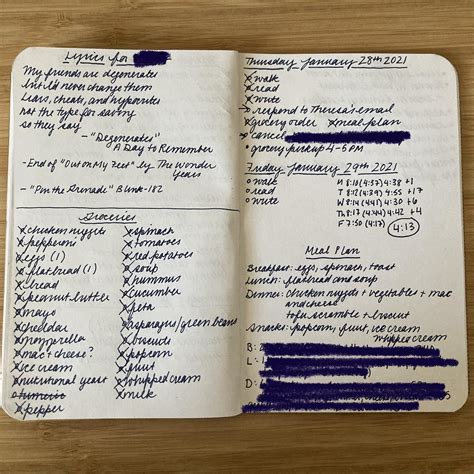 Lyrics for
My friends are degenerates
but I'd never change them
Liars, cheats, and hypocrites
not the type for saving
so they say
- "Degenerates"
A Day to Remember
- End of "Out on My Feet" by The Wonder
Years
- "Pin the Grenade" Blink-182
Groceries
chicken nuggets
pepperoni
eggs (1)
flatbread (1)
bread
peanut butter
mayo
cheddar
mozzarella
mac + cheese?
ice cream
nutritional yeast
tumeric
pepper
spinach
tomatoes
red potatoes
soup
hummus
cucumber
feta
asparagus/green beans
biscuits
popcorn
fruit
whipped cream
milk
Thursday January 28th 2021
walk
read
write
respond to Theresa's email
grocery order meal plan
cancel
grocery pickup 4-5PM
Friday January 29th 2021
walk
read
write
M 8:10 (4:37) 4:38 +1
T 8:12 (4:39) 4:55 +17
W 8:14 (4:41) 4:30 +6
Th 8:17 (4:44) 4:42 +4
F 7:50 (4:17)
4:13
Meal Plan
Breakfast: eggs, spinach, toast
Lunch: flatbread and soup
Dinner: chicken nuggets + vegetables + mac
and cheese
tofu scramble + biscuit
Snacks: popcorn, fruit, ice cream
whipped cream
B:
L:
D: